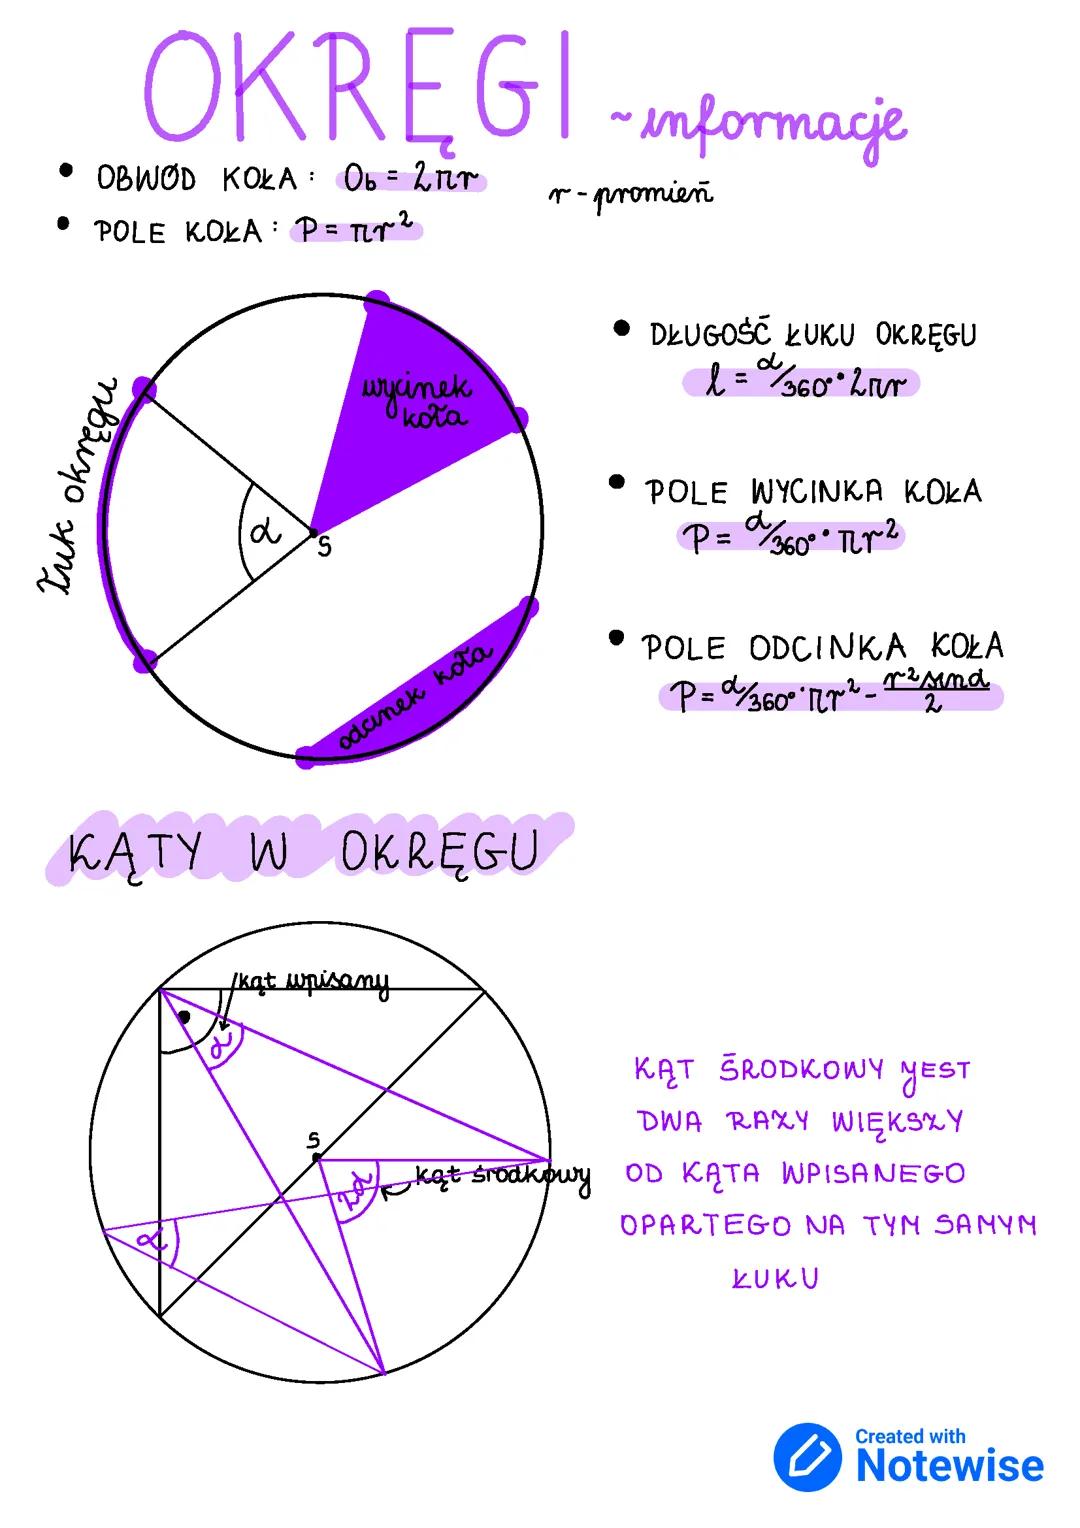 OKRĘGI ~informacje
• OBWÓD KOŁA: Ob = 2πr
r - promień
• POLE KOŁA: P = πr²
łuk okręgu
α
S
wycinek
koła
odcinek koła
• DŁUGOŚĆ ŁUKU OKRĘGU
l = α/360° · 2πr
• POLE WYCINKA KOŁA
P = α/360° · πr²
• POLE ODCINKA KOŁA
P = α/360° · πr² - r² sinα/2
KĄTY W OKRĘGU
kąt wpisany
α
S
2α
kąt środkowy
α
KĄT ŚRODKOWY JEST
DWA RAZY WIĘKSZY
OD KĄTA WPISANEGO
OPARTEGO NA TYM SAMYM
ŁUKU
Created with
Notewise